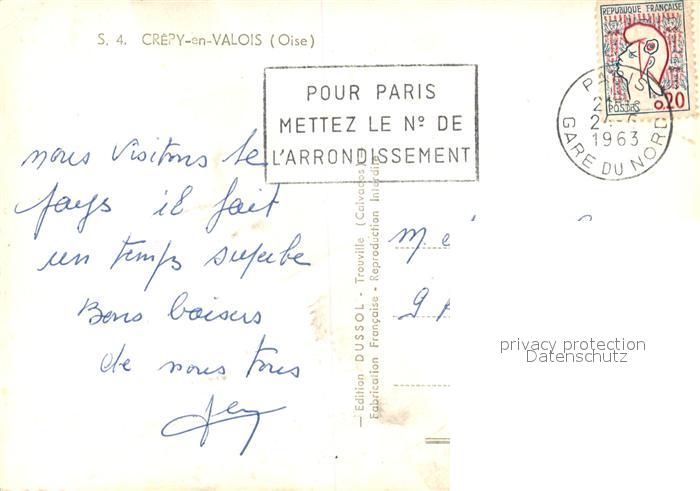 S. 4. CRÉPY-en-VALOIS (Oise)
RÉPUBLIQUE FRANÇAISE
POSTES 0,20
POUR PARIS
METTEZ LE Nº DE
L'ARRONDISSEMENT
PARIS
1963
GARE DU NORD
nous visitons le
pays il fait
un temps superbe
Bons baisers
de nous tous
—Edition DUSSOL - Trouville (Calvados)
Fabrication Française - Reproduction Interdite
M. e
privacy protection
Datenschutz